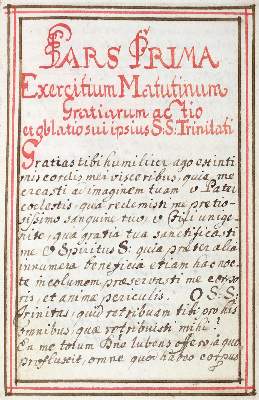 PARS PRIMA
Exercitium Matutinum
Gratiarum actio
et oblatio sui ipsius S:S: Trinitati
Gratias tibi humiliter ago ex inti
mis cordis mei visceribus, quia me
creasti ad imaginem tuam o Pater
coelestis, quia redemisti me pretio
sissimo sanguine tuo o Fili unige
nite, quia gratia tua sanctificasti
me o Spiritus S: quia praeter alia
innumera beneficia etiam hac noc
te incolumem praeservasti me corpo
ris, et animae periculis. O S:S:
Trinitas, quid retribuam tibi pro his
omnibus, quae retribuisti mihi?
En me totum Dno lubens offero, a quo
profluxit, omne quod habeo corpus